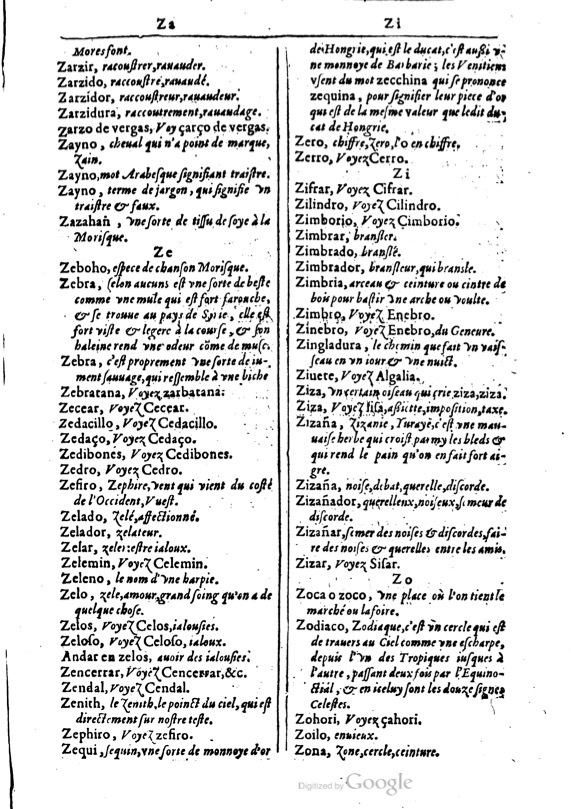 Za
Mores font.
Zarzir, racoustrer, rauauder.
Zarzido, raccoustré, rauaudé.
Zarzidor, raccoustreur, rauaudeur.
Zarzidura, raccoutrement, rauaudage.
Zarzo de vergas, Voy çarço de vergas.
Zayno, cheual qui n'a point de marque,
Zain.
Zayno, mot Arabesque signifiant traistre.
Zayno, terme de jargon, qui signifie vn
traistre & faux.
Zazahan, vne sorte de tissu de soye à la
Morisque.
Ze
Zeboho, espece de chanson Morisque.
Zebra, selon aucuns est vne sorte de beste
comme vne mule qui est fort farouche,
& se trouue au pays de Syrie, elle est
fort viste & legere à la course, & son
baleine rend vne odeur cõme de musc.
Zebra, c'est proprement vne sorte de iu-
ment sauuage, qui ressemble à vne biche
Zebratana, Voyez zarbatana.
Zecear, Voyez Cecear.
Zedacillo, Voyez Cedacillo.
Zedaço, Voyez Cedaço.
Zedibones, Voyez Cedibones.
Zedro, Voyez Cedro.
Zefiro, Zephire, vent qui vient du costé
de l'Occident, Vuest.
Zelado, zelé, affectionné.
Zelador, zelateur.
Zelar, zeler: estre ialoux.
Zelemin, Voyez Celemin.
Zeleno, le nom d'vne harpie.
Zelo, zele, amour, grand soing qu'on a de
quelque chose.
Zelos, Voyez Celos, ialousies.
Zeloso, Voyez Celoso, ialoux.
Andar en zelos, auoir des ialousies.
Zencerrar, Voyez Cencerrar, &c.
Zendal, Voyez Cendal.
Zenith, le Zenith, le poinct du ciel, qui est
directement sur nostre teste.
Zephiro, Voyez zefiro.
Zequi, sequin, vne sorte de monnoye d'or
Zi
de Hongrie, qui est le ducat, c'est aussi v-
ne monnoye de Barbarie; les Venitiens
vsent du mot zecchina qui se prononce
zequina, pour signifier leur piece d'or
qui est de la mesme valeur que ledit du-
cat de Hongrie.
Zero, chiffre, Zero, l'o en chiffre.
Zerro, Voyez Cerro.
Zi
Zifrar, Voyez Cifrar.
Zilindro, Voyez Cilindro.
Zimborio, Voyez Cimborio.
Zimbrar, bransler.
Zimbrado, branslé.
Zimbrador, bransleur, qui bransle.
Zimbria, arceau & ceinture ou cintre de
bois pour bastir vne arche ou voulte.
Zimbro, Voyez Enebro.
Zinebro, Voyez Enebro, du Geneure.
Zingladura, le chemin que fait vn vais-
seau en vn iour & vne nuict.
Ziuete, Voyez Algalia.
Ziza, vn certain oiseau qui crie ziza, ziza.
Ziza, Voyez sisa, assiette, imposition, taxe.
Zizaña, Zizanie, Yuraye, c'est vne mau-
uaise herbe qui croist parmy les bleds &
qui rend le pain qu'on en fait fort ai-
gre.
Zizaña, noise, debat, querelle, discorde.
Zizañador, querelleux, noiseux, semeur de
discorde.
Zizañar, semer des noises & discordes, fai-
re des noises & querelles entre les amis.
Zizar, Voyez Sisar.
Zo
Zoca o zoco, vne place où l'on tient le
marché ou la foire.
Zodiaco, Zodiaque, c'est vn cercle qui est
de trauers au Ciel comme vne escharpe,
depuis l'vn des Tropiques iusques à
l'autre, passant deux fois par l'Equino-
ctial, & en iceluy sont les douze signes
Celestes.
Zohori, Voyez çahori.
Zoilo, enuieux.
Zona, Zone, cercle, ceinture.
Digitized by Google